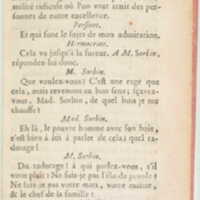 milité ridicule où l'on veut avoir des per-
sonnes de notre excellence.
Persinet.
Et qui sont le sujet de mon admiration.
Hermocrate.
Cela va jusqu'à la fureur. A M. Sorbin,
répondez lui donc.
M. Sorbin.
Que voulez-vous? C'est une rage que
cela, mais revenons au bon sens; sçavez-
vous, Mad. Sorbin, de quel bois je me
chauffe?
Mad. Sorbin.
Eh là, le pauvre homme avec son bois,
c'est bien à lui à parler de cela; quel ra-
dotage!
M. Sorbin.
Du radotage! à qui parlez-vous, s'il
vous plaît? Ne suis-je pas l'élu du peuple?
Ne suis-je pas votre mari, votre maître,
& le chef de la famille?